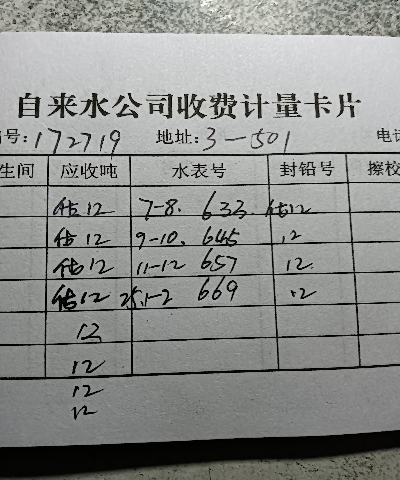 自来水公司收费计量卡片
号:172719 地址:3-501 电话
生间 应收吨 水表号 封铅号 擦校
估12 7-8. 633 估12
估12 9-10. 645 12
估12 11-12 657 12.
估12 25.1-2 669 12
12
12
12
12